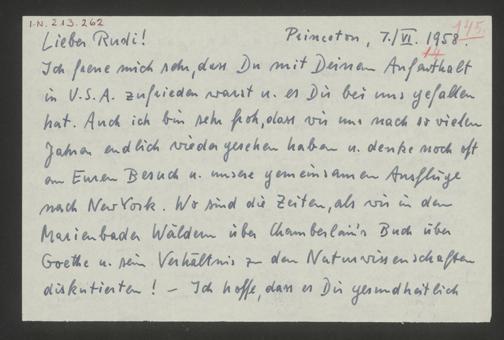 I.N. 213.262
145.
14
Lieber Rudi! Princeton, 7./VI. 1958.
Ich freue mich sehr, dass Du mit Deinem Aufenthalt
in U.S.A. zufrieden warst u. es Dir bei uns gefallen
hat. Auch ich bin sehr froh, dass wir uns nach so vielen
Jahren endlich wiedergesehen haben u. denke noch oft
an Euren Besuch u. unsere gemeinsamen Ausflüge
nach New York. Wo sind die Zeiten, als wir in den
Marienbader Wäldern über Chamberlain's Buch über
Goethe u. sein Verhältnis zu den Naturwissenschaften
diskutierten! – Ich hoffe, dass es Dir gesundheitlich